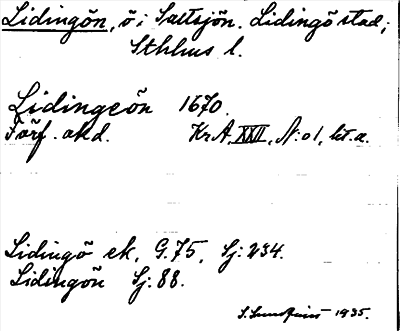 Lidingön, ö i Saltsjön. Lidingö stad;
Sthlms l.
Lidingeön 1670.
Förf. okd. Kr.A. XXII, N:o 1, lit. a.
Lidingö ek, G. 75, Sj: 234.
Lidingön Sj: 88.
1935.